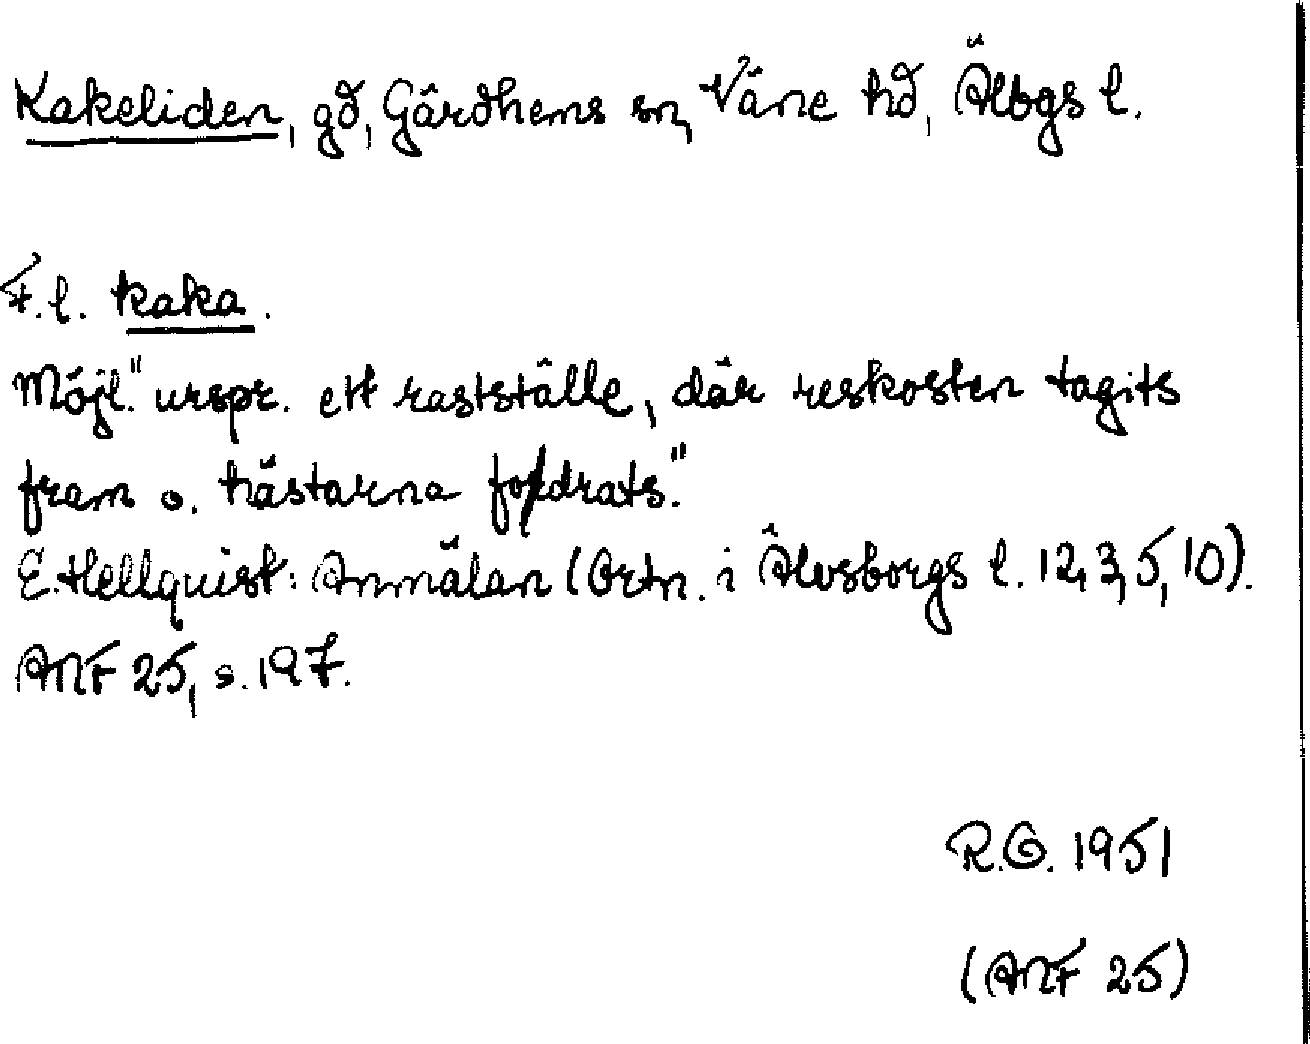 Kakeliden, gd, Gärdhems sn, Väne hd, Älvbgs l.
F.l. kaka.
Möjl. "urspr. ett rastställe, där reskosten tagits
fram o. hästarna fodrats."
E. Hellquist: Anmälan (Ortn. i Älvsborgs l. 12, 3, 5, 10).
ANF 25, s. 197.
R.O. 1951
(ANF 25)